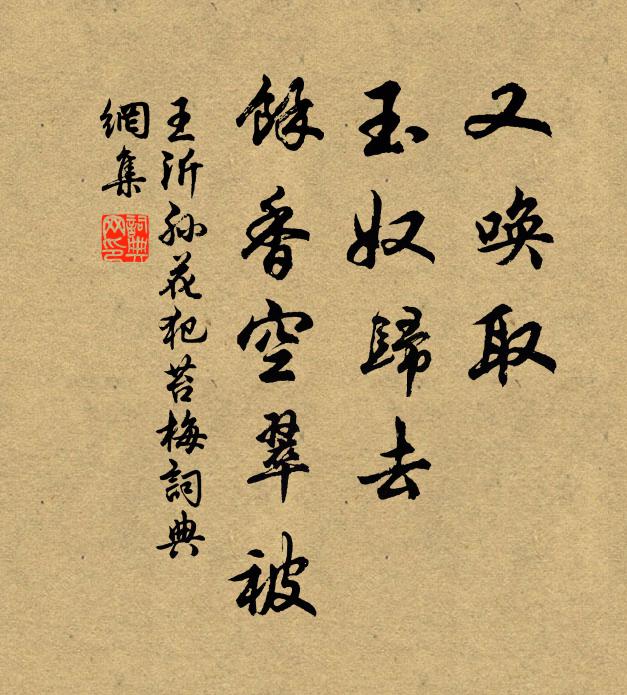 又唤取
玉奴歸去
餘香空翠被
王沂孙花犯苔梅詞典
網集
詞典
网印